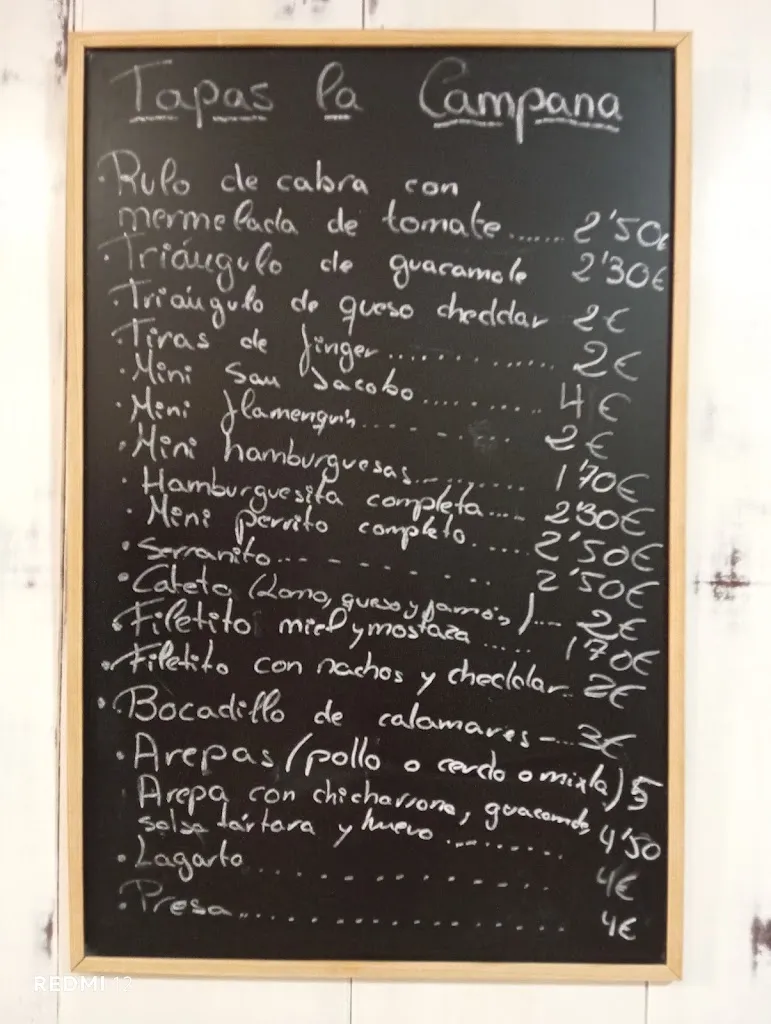 Tapas la Campana
· Rulo de cabra con
mermelada de tomate....... 2'50€
· Triángulo de guacamole 2'30€
· Triángulo de queso cheddar 2€
· Tiras de finger............. 2€
· Mini San Jacobo......... 4€
· Mini flamenquín......... 2€
· Mini hamburguesas......... 1'70€
· Hamburguesita completa.... 2'30€
· Mini perrito completo...... 2'50€
· Serranito............ 2'50€
· Cateto (Lomo, queso y jamón).... 2€
· Filetito miel y mostaza ...... 1'70€
· Filetito con nachos y cheddar.. 2€
· Bocadillo de calamares ..... 3€
· Arepas (pollo o cerdo o mixta) 5
Arepa con chicharrona, guacamole,
salsa tártara y huevo ......... 4'50
· Lagarto................ 4€
· Presa.................... 4€
REDMI 13